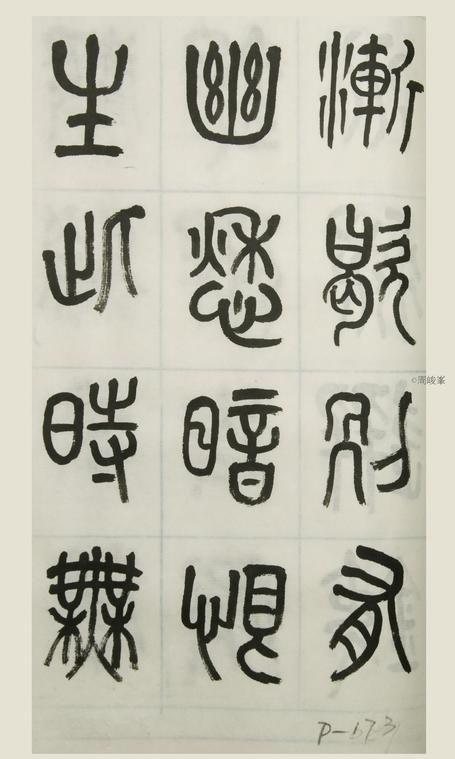 漸歇別有
幽愁暗恨
生此時無
©周峻峯